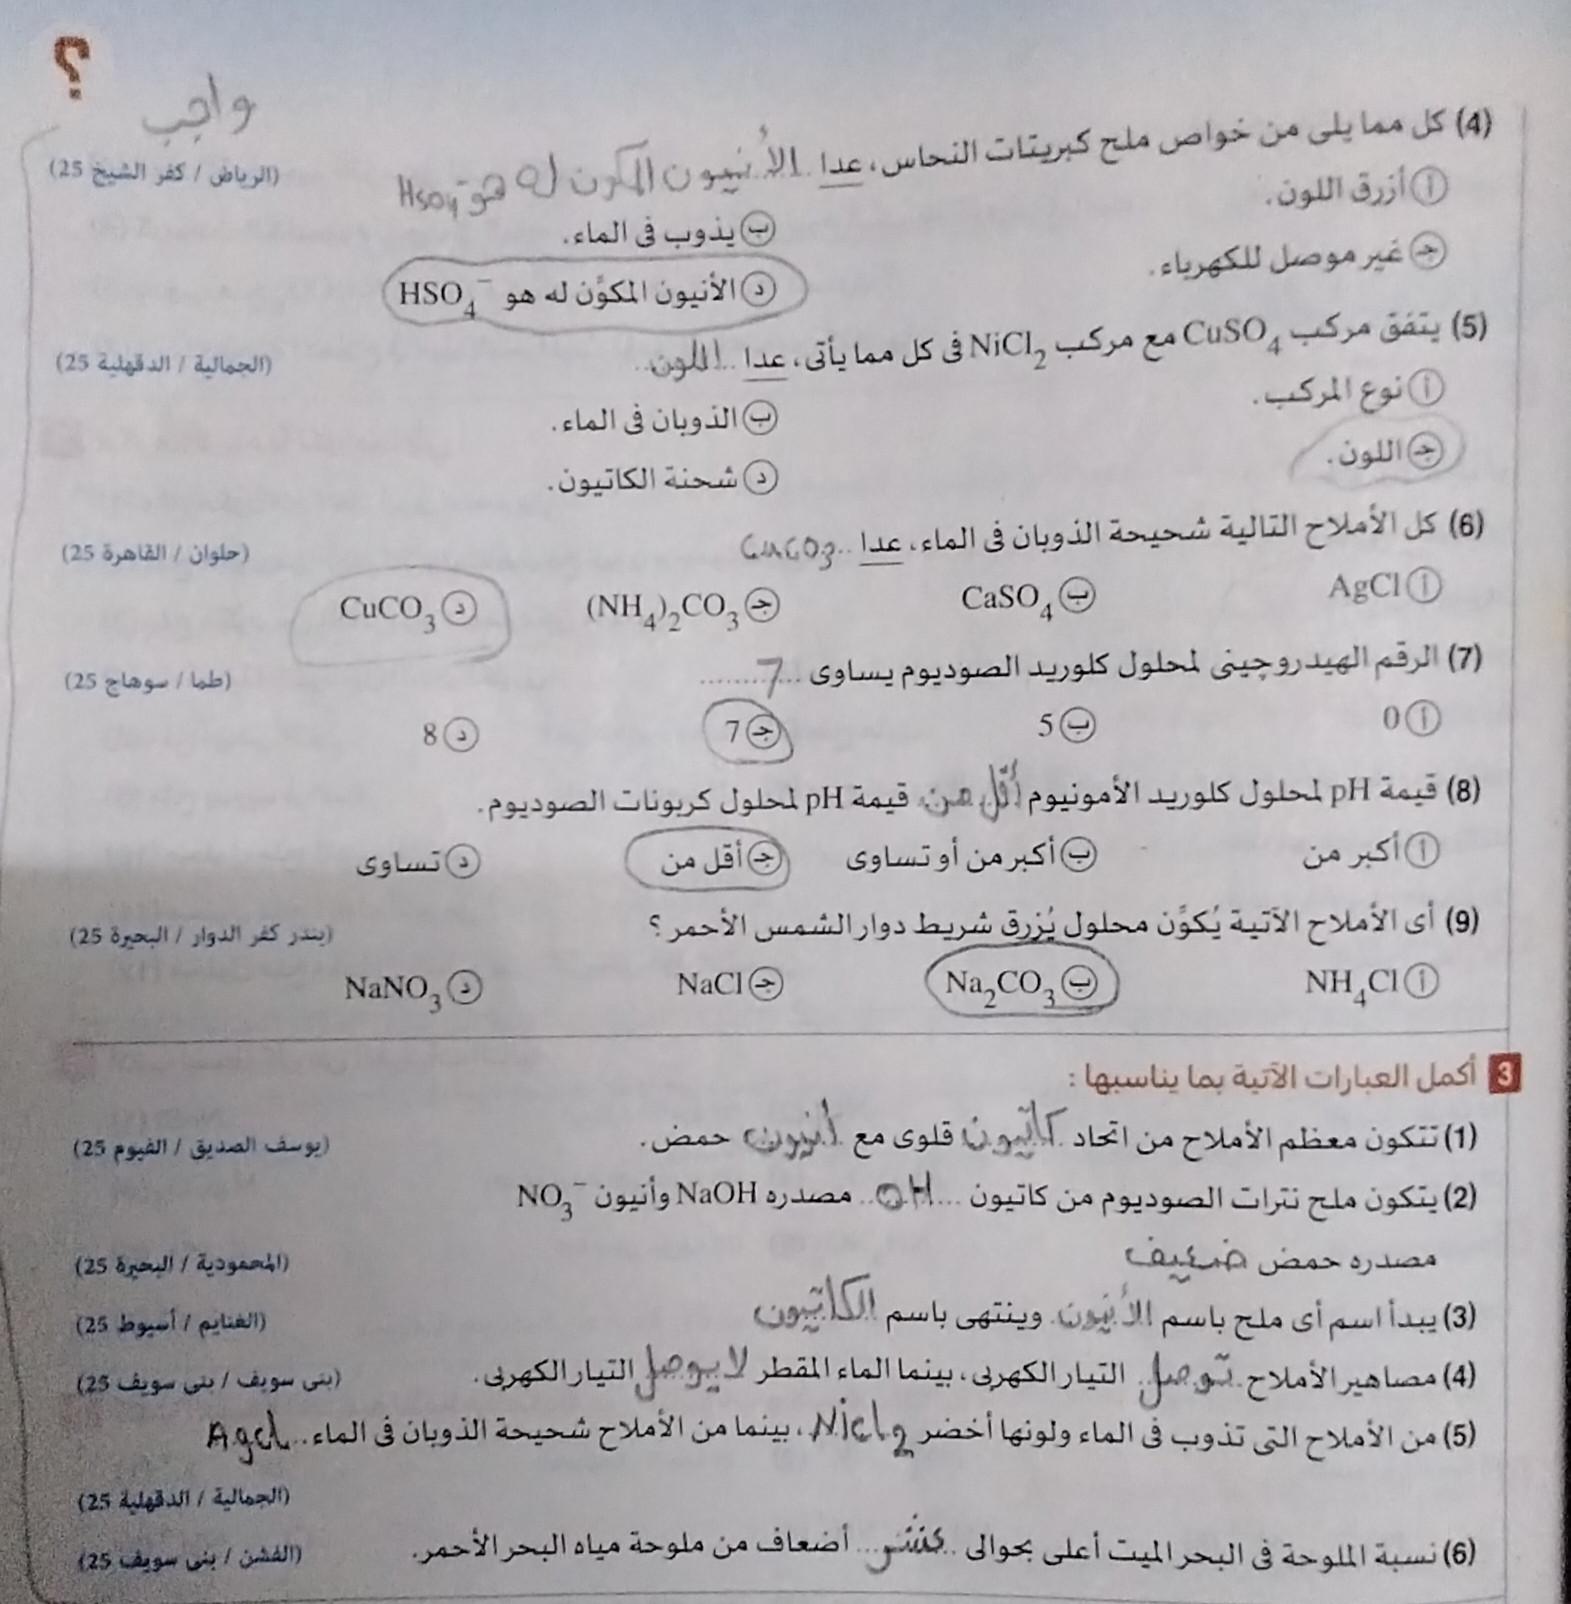 ؟
واجب
(4) كل مما يلى من خواص ملح كبريتات النحاس، عدا الأنيون المكون له هو HSO4⁻
(الرياض / كفر الشيخ 25)
أ أزرق اللون.
ب يذوب فى الماء.
جـ غير موصل للكهرباء.
د الأنيون المكوِّن له هو HSO₄⁻
(5) يتفق مركب CuSO₄ مع مركب NiCl₂ فى كل مما يأتى، عدا اللون
(الجمالية / الدقهلية 25)
أ نوع المركب.
ب الذوبان فى الماء.
جـ اللون.
د شحنة الكاتيون.
(6) كل الأملاح التالية شحيحة الذوبان فى الماء، عدا CuCO3
(حلوان / القاهرة 25)
أ AgCl ب CaSO₄ جـ (NH₄)₂CO₃ د CuCO₃
(7) الرقم الهيدروچينى لمحلول كلوريد الصوديوم يساوى 7
(طما / سوهاج 25)
أ 0 ب 5 جـ 7 د 8
(8) قيمة pH لمحلول كلوريد الأمونيوم أقل من قيمة pH لمحلول كربونات الصوديوم.
أ أكبر من ب أكبر من أو تساوى جـ أقل من د تساوى
(9) أى الأملاح الآتية يُكوِّن محلول يُزرق شريط دوار الشمس الأحمر ؟
(بندر كفر الدوار / البحيرة 25)
أ NH₄Cl ب Na₂CO₃ جـ NaCl د NaNO₃
3 أكمل العبارات الآتية بما يناسبها :
(1) تتكون معظم الأملاح من اتحاد كاتيون قلوى مع أنيون حمض.
(يوسف الصديق / الفيوم 25)
(2) يتكون ملح نترات الصوديوم من كاتيون OH مصدره NaOH وأنيون NO₃⁻
مصدره حمض ضعيف
(المحمودية / البحيرة 25)
(3) يبدأ اسم أى ملح باسم الأنيون وينتهى باسم الكاتيون
(الغنايم / أسيوط 25)
(4) مصاهير الأملاح توصل التيار الكهربى، بينما الماء المقطر لا يوصل التيار الكهربى.
(بنى سويف / بنى سويف 25)
(5) من الأملاح التى تذوب فى الماء ولونها أخضر Nicl2، بينما من الأملاح شحيحة الذوبان فى الماء Agcl
(الجمالية / الدقهلية 25)
(6) نسبة الملوحة فى البحر الميت أعلى بحوالى عشر أضعاف من ملوحة مياه البحر الأحمر.
(الفشن / بنى سويف 25)